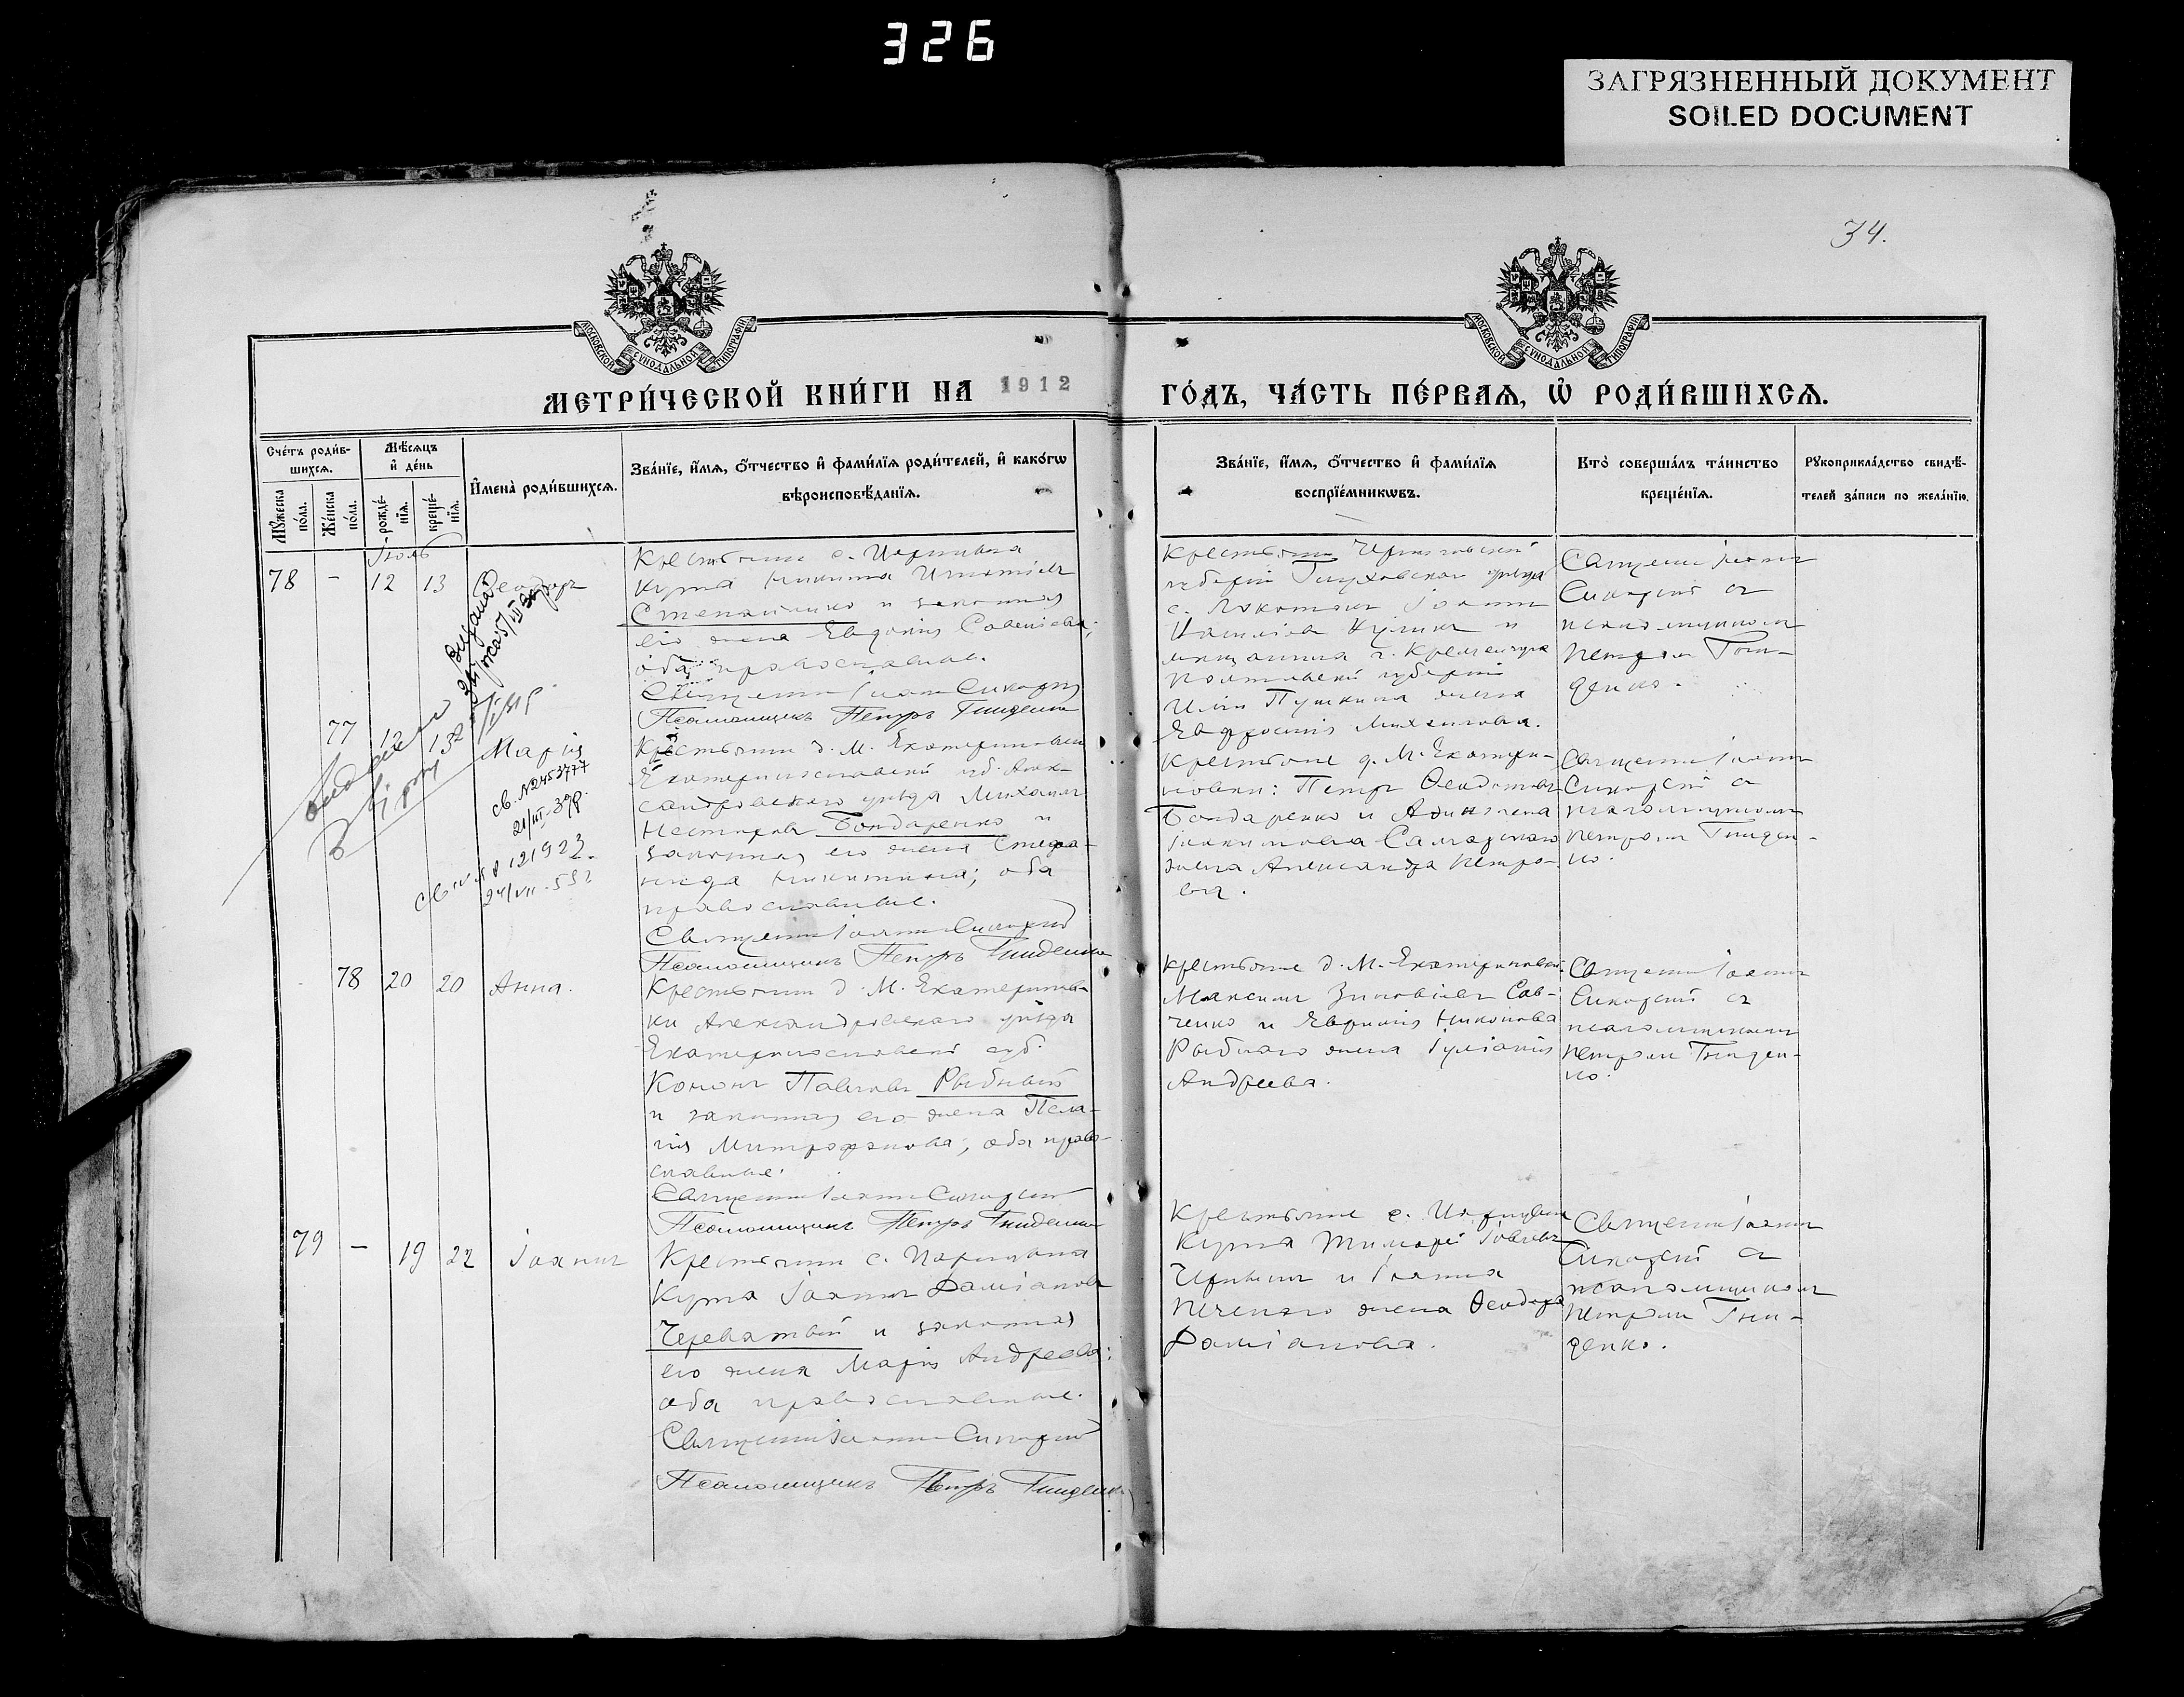 326
ЗАГРЯЗНЕННЫЙ ДОКУМЕНТ
SOILED DOCUMENT
34.
МОСКОВСКОЙ СѴНОДАЛЬНОЙ ТИПОГРАФІИ
МОСКОВСКОЙ СѴНОДАЛЬНОЙ ТИПОГРАФІИ
МЕТРИ́ЧЕСКОЙ КНИ́ГИ НА 1912
ГО́ДЪ, ЧА́СТЬ ПЕ́РВАѦ, Ѡ҆ РОДИ́ВШИХСѦ.
Сче́тъ роди́в-
шихсѧ.
Мѣ́сѧцъ
и҆ де́нь
Мꙋ́жеска по́ла.
Же́нска по́ла.
рожде́-нїѧ.
креще́-нїѧ.
И҆мена̀ роди́вшихсѧ.
Зва́нїе, и҆́мѧ, о҆́тчество и҆ фами́лїѧ роди́телей, и҆ како́гѡ
вѣроисповѣ́данїѧ.
Зва́нїе, и҆́мѧ, о҆́тчество и҆ фами́лїѧ
воспрїе́мникѡвъ.
Кто̀ соверша́лъ та́инство
креще́нїѧ.
Рꙋкоприкла́дство свидѣ́-
телей за́писи по жела́нїю.
Іюль
78 - 12 13 Ѳеодоръ
Крестьянинъ с.
Кута Никита Игнатіевъ
Степаненко и законная
его жена Евдокія Савельева;
оба православные.
Священникъ Іоаннъ Сикорскій
Псаломщикъ Петръ Гниденко
Крестьянинъ Черниговской
губерніи Глуховскаго уѣзда
с. Іоаннъ
и
мѣщанина г. Кременчуга
Полтавской губерніи
Пушкина жена
Евфросинія Михайлова.
Священникъ Іоаннъ
Сикорскій съ
псаломщикомъ
Петромъ Гни-
денко.
77 12 13 Марія
св. №2453777
21/III-39р.
121923
24/VII-55
Крестьянинъ д. М. Екатериновки
Екатеринославской губ. Алек-
сандровскаго уѣзда Михаилъ
Несторовъ Бондаренко и
законная его жена Степа-
нида Никитина; оба
православные.
Священникъ Іоаннъ Сикорскій
Псаломщикъ Петръ Гниденко
Крестьяне д. М. Екатери-
новки: Петръ Ѳеодотовъ
Бондаренко и
жена Александра Петро-
ва.
Священникъ Іоаннъ
Сикорскій съ
псаломщикомъ
Петромъ Гниден-
ко.
78 20 20 Анна.
Крестьянинъ д. М. Екатеринов-
ки Александровскаго уѣзда
Екатеринославской губ.
Кононъ Павловъ Рыбный
и законная его жена Пела-
гія Митрофанова; оба право-
славные.
Священникъ Іоаннъ Сикорскій
Псаломщикъ Петръ Гниденко
Крестьяне д. М. Екатериновки:
Максимъ Зиновіевъ Сав-
ченко и Никонова
Рыбнаго жена Іуліанія
Андреева.
Священникъ Іоаннъ
Сикорскій съ
псаломщикомъ
Петромъ Гниден-
ко.
79 - 19 22 Іоаннъ
Крестьянинъ с.
Кута Іоаннъ Даміановъ
Череватый и законная
его жена Марія Андреева;
оба православные.
Священникъ Іоаннъ Сикорскій
Псаломщикъ Петръ Гниденко
Крестьяне с.
Кута Тимоѳей
и Іоанна
жена Ѳеодора
Даміанова.
Священникъ Іоаннъ
Сикорскій съ
псаломщикомъ
Петромъ Гни-
денко.